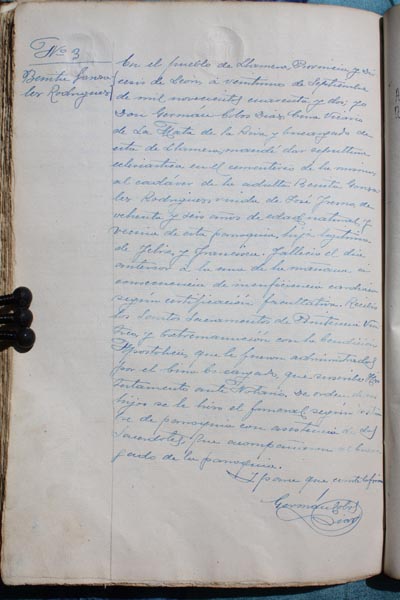 Nº 3
Benita Gonza
lez Rodriguez
En el pueblo de Llamera, Provincia y Dió
cesis de León, á veintiuno de Septiembre
de mil novecientos cuarenta y dos; yo
Don Germán Cobos Diaz, Cura Vicario
de La Mata de la Riva y encargado de
este de Llamera, mandé dar sepultura
eclesiástica en el cementerio de la misma
al cadáver de la adulta Benita Gonza
lez Rodriguez, viuda de José
ochenta y seis años de edad, natural y
vecina de esta parroquia, hija legitima
de y Francisca. Falleció el dia
anterior a la una de la mañana, a
consecuencia de insuficiencia cardiaca
según certificación facultativa. Recibió
los Santos Sacramentos de Penitencia Viá
tico y Extremaunción con la bendición
Apostólica, que le fueron administrados
por el encargado, que suscribe.
testamento ante Notario. De orden de sus
hijos se la hizo el funeral según
de parroquia con asistencia de
Sacerdotes, que acompañaron al encar
gado de la parroquia.
Y para que conste lo firmo
Germán Cobos
Diaz